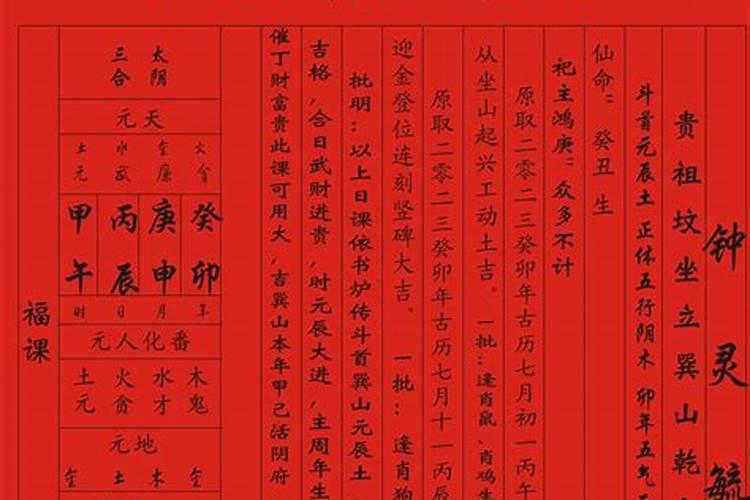 钟灵毓
贵祖坟坐立巽山乾
斗首元辰土 正体五行阴木 卯年五气
仙命：癸丑生
祀主鸿庚：众多不计
原取二零二三癸卯年古历七月初一丙午
从坐山起兴工动土吉。一批：逢肖鼠、肖鸡生
原取二零二三癸卯年古历七月十一丙辰
迎金登位连刻竖碑大吉。一批：逢肖狗
批明：以上日课依书炉传斗首巽山元辰土
吉格，合日武财进贵，时元辰大进，主周年生
催丁财富贵此课可用大，吉巽山本年甲己活阴府
太阴
三合
天元
火 金 水 土
贪 廉 武 元
癸 庚 丙 甲
卯 申 辰 午
年 月 日 时
番化人元
木 水 火 土
鬼 才 贪 元
地元
金 木 土 金
福课